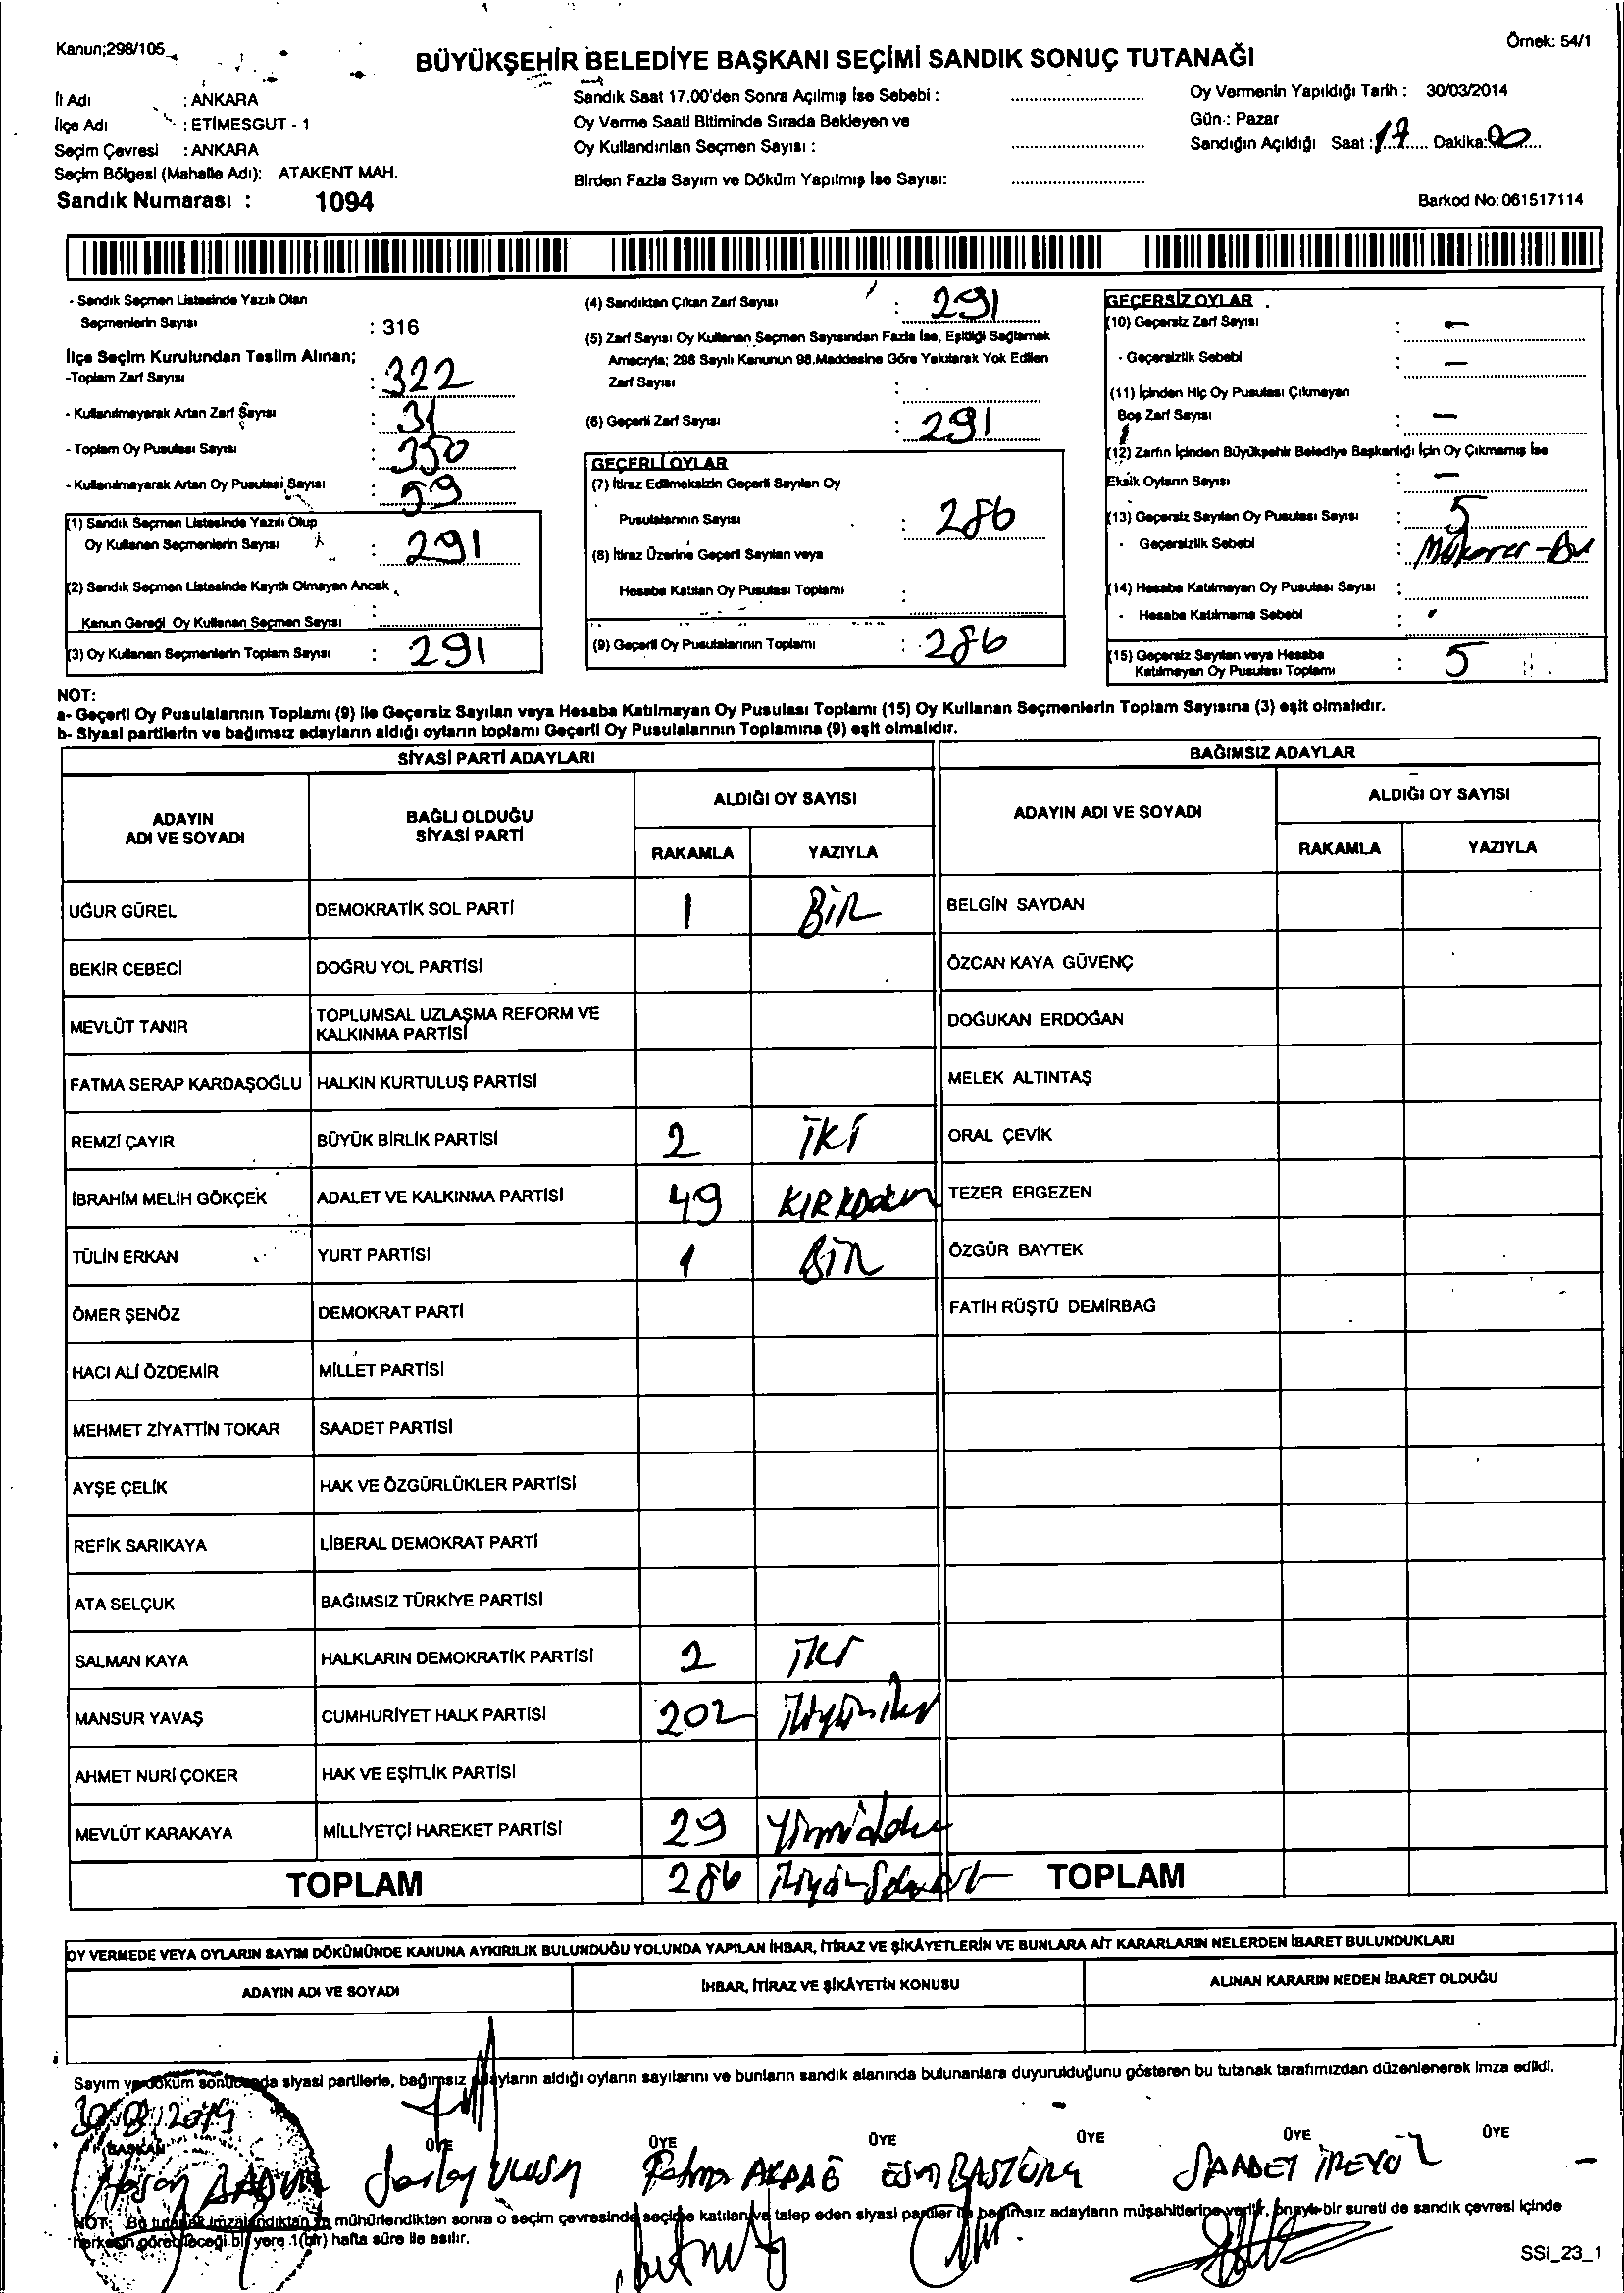 Kanun;298/105
Örnek: 54/1
BÜYÜKŞEHİR BELEDİYE BAŞKANI SEÇİMİ SANDIK SONUÇ TUTANAĞI
İl Adı : ANKARA
İlçe Adı : ETİMESGUT - 1
Seçim Çevresi : ANKARA
Seçim Bölgesi (Mahalle Adı): ATAKENT MAH.
Sandık Numarası : 1094
Sandık Saat 17.00'den Sonra Açılmış İse Sebebi :
Oy Verme Saati Bitiminde Sırada Bekleyen ve
Oy Kullandırılan Seçmen Sayısı :
Birden Fazla Sayım ve Döküm Yapılmış İse Sayısı:
Oy Vermenin Yapıldığı Tarih : 30/03/2014
Gün : Pazar
Sandığın Açıldığı Saat : 17 Dakika: 00
Barkod No: 061517114
- Sandık Seçmen Listesinde Yazılı Olan
Seçmenlerin Sayısı : 316
İlçe Seçim Kurulundan Teslim Alınan;
-Toplam Zarf Sayısı : 322
- Kullanılmayarak Artan Zarf Sayısı : 31
- Toplam Oy Pusulası Sayısı : 350
- Kullanılmayarak Artan Oy Pusulası Sayısı : 59
(1) Sandık Seçmen Listesinde Yazılı Olup
Oy Kullanan Seçmenlerin Sayısı : 291
(2) Sandık Seçmen Listesinde Kayıtlı Olmayan Ancak
Kanun Gereği Oy Kullanan Seçmen Sayısı :
(3) Oy Kullanan Seçmenlerin Toplam Sayısı : 291
(4) Sandıktan Çıkan Zarf Sayısı : 291
(5) Zarf Sayısı Oy Kullanan Seçmen Sayısından Fazla İse, Eşitliği Sağlamak
Amacıyla; 298 Sayılı Kanunun 98.Maddesine Göre Yakılarak Yok Edilen
Zarf Sayısı :
(6) Geçerli Zarf Sayısı : 291
GEÇERLİ OYLAR
(7) İtiraz Edilmeksizin Geçerli Sayılan Oy
Pusulalarının Sayısı : 286
(8) İtiraz Üzerine Geçerli Sayılan veya
Hesaba Katılan Oy Pusulası Toplamı :
(9) Geçerli Oy Pusulalarının Toplamı : 286
GEÇERSİZ OYLAR
(10) Geçersiz Zarf Sayısı : -
- Geçersizlik Sebebi : -
(11) İçinden Hiç Oy Pusulası Çıkmayan
Boş Zarf Sayısı : -
(12) Zarfın İçinden Büyükşehir Belediye Başkanlığı İçin Oy Çıkmamış İse
Eksik Oyların Sayısı : -
(13) Geçersiz Sayılan Oy Pusulası Sayısı : 5
- Geçersizlik Sebebi :
(14) Hesaba Katılmayan Oy Pusulası Sayısı :
- Hesaba Katılmama Sebebi :
(15) Geçersiz Sayılan veya Hesaba
Katılmayan Oy Pusulası Toplamı : 5
NOT:
a- Geçerli Oy Pusulalarının Toplamı (9) ile Geçersiz Sayılan veya Hesaba Katılmayan Oy Pusulası Toplamı (15) Oy Kullanan Seçmenlerin Toplam Sayısına (3) eşit olmalıdır.
b- Siyasi partilerin ve bağımsız adayların aldığı oyların toplamı Geçerli Oy Pusulalarının Toplamına (9) eşit olmalıdır.
SİYASİ PARTİ ADAYLARI BAĞIMSIZ ADAYLAR
ADAYIN ADI VE SOYADI BAĞLI OLDUĞU SİYASİ PARTİ ALDIĞI OY SAYISI ADAYIN ADI VE SOYADI ALDIĞI OY SAYISI
RAKAMLA YAZIYLA RAKAMLA YAZIYLA
UĞUR GÜREL DEMOKRATİK SOL PARTİ 1 BİR BELGİN SAYDAN
BEKİR CEBECİ DOĞRU YOL PARTİSİ ÖZCAN KAYA GÜVENÇ
MEVLÜT TANIR TOPLUMSAL UZLAŞMA REFORM VE KALKINMA PARTİSİ DOĞUKAN ERDOĞAN
FATMA SERAP KARDAŞOĞLU HALKIN KURTULUŞ PARTİSİ MELEK ALTINTAŞ
REMZİ ÇAYIR BÜYÜK BİRLİK PARTİSİ 2 İKİ ORAL ÇEVİK
İBRAHİM MELİH GÖKÇEK ADALET VE KALKINMA PARTİSİ 49 KIRKDOKUZ TEZER ERGEZEN
TÜLİN ERKAN YURT PARTİSİ 1 BİR ÖZGÜR BAYTEK
ÖMER ŞENÖZ DEMOKRAT PARTİ FATİH RÜŞTÜ DEMİRBAĞ
HACI ALİ ÖZDEMİR MİLLET PARTİSİ
MEHMET ZİYATTİN TOKAR SAADET PARTİSİ
AYŞE ÇELİK HAK VE ÖZGÜRLÜKLER PARTİSİ
REFİK SARIKAYA LİBERAL DEMOKRAT PARTİ
ATA SELÇUK BAĞIMSIZ TÜRKİYE PARTİSİ
SALMAN KAYA HALKLARIN DEMOKRATİK PARTİSİ 2 İKİ
MANSUR YAVAŞ CUMHURİYET HALK PARTİSİ 202 İkiyüziki
AHMET NURİ ÇOKER HAK VE EŞİTLİK PARTİSİ
MEVLÜT KARAKAYA MİLLİYETÇİ HAREKET PARTİSİ 29 Yirmidokuz
TOPLAM 286 TOPLAM
OY VERMEDE VEYA OYLARIN SAYIM DÖKÜMÜNDE KANUNA AYKIRILIK BULUNDUĞU YOLUNDA YAPILAN İHBAR, İTİRAZ VE ŞİKÂYETLERİN VE BUNLARA AİT KARARLARIN NELERDEN İBARET BULUNDUKLARI
ADAYIN ADI VE SOYADI İHBAR, İTİRAZ VE ŞİKÂYETİN KONUSU ALINAN KARARIN NEDEN İBARET OLDUĞU
Sayım ve döküm sonucunda siyasi partilerle, bağımsız adayların aldığı oyların sayılarını ve bunların sandık alanında bulunanlara duyurulduğunu gösteren bu tutanak tarafımızdan düzenlenerek imza edildi.
30/03/2014
BAŞKAN ÜYE ÜYE ÜYE ÜYE ÜYE ÜYE
Hasan ULUSN Fatma AKDAĞ ESİN BAŞTÜRK SAADET
NOT: Bu tutanak imzalandıktan ve mühürlendikten sonra o seçim çevresinde seçime katılan ve talep eden siyasi partiler ile bağımsız adayların müşahitlerine verilir, onaylı bir sureti de sandık çevresi içinde
herkesin görebileceği bir yere 1(bir) hafta süre ile asılır.
SSİ_23_1